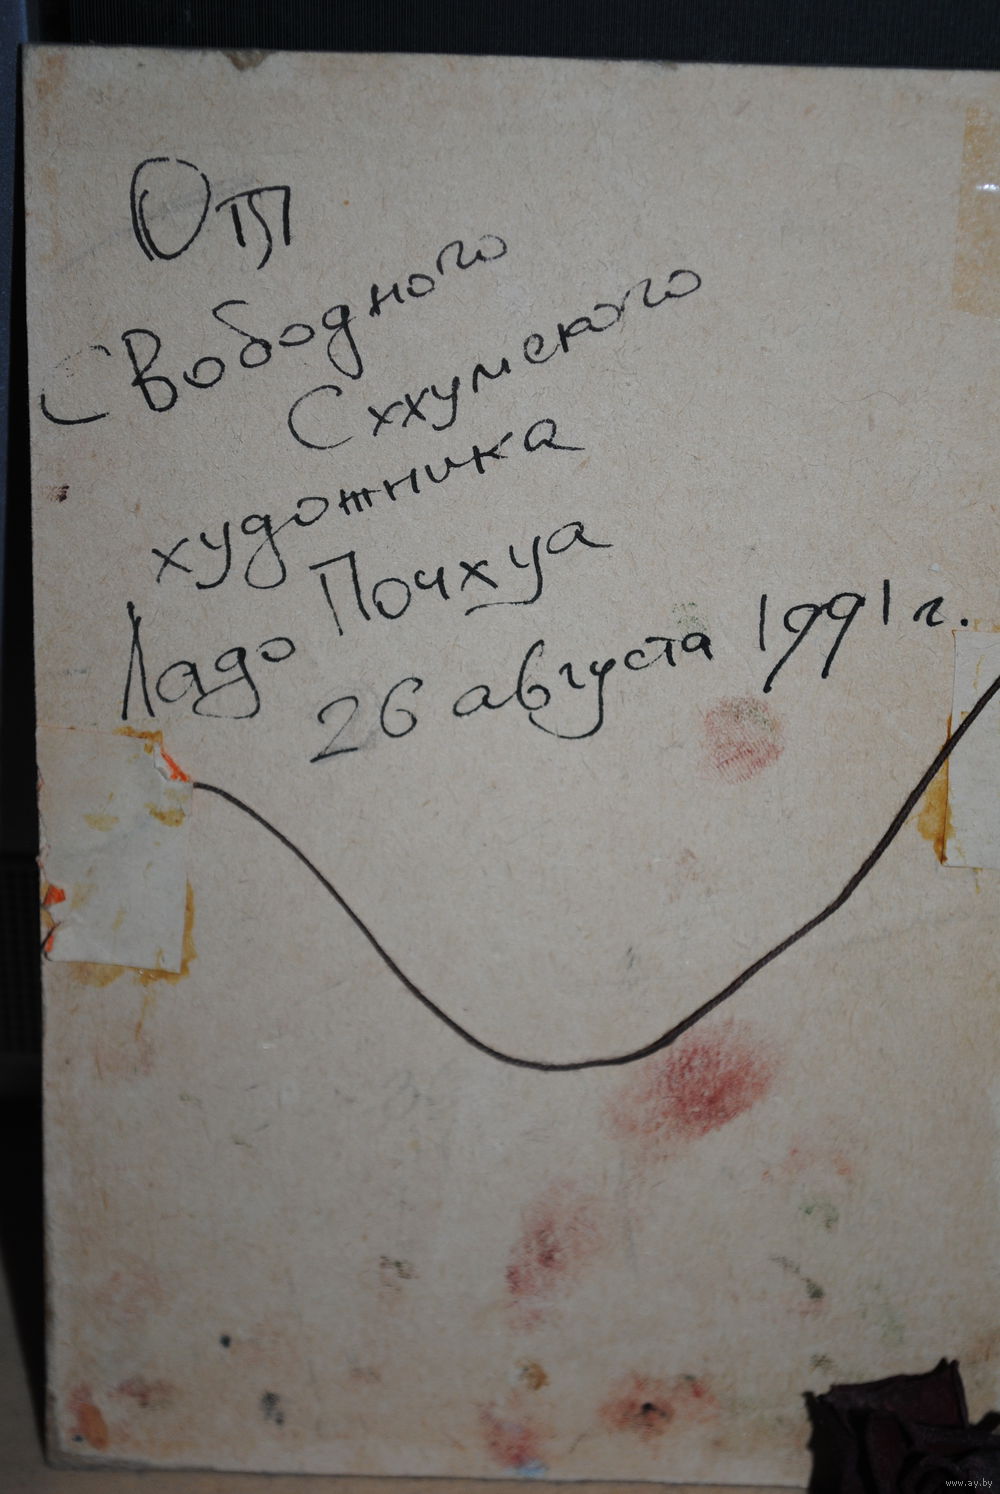 От
Свободного
Сххумского
художника
Ладо Почхуа
26 августа 1991 г.
www.ay.by